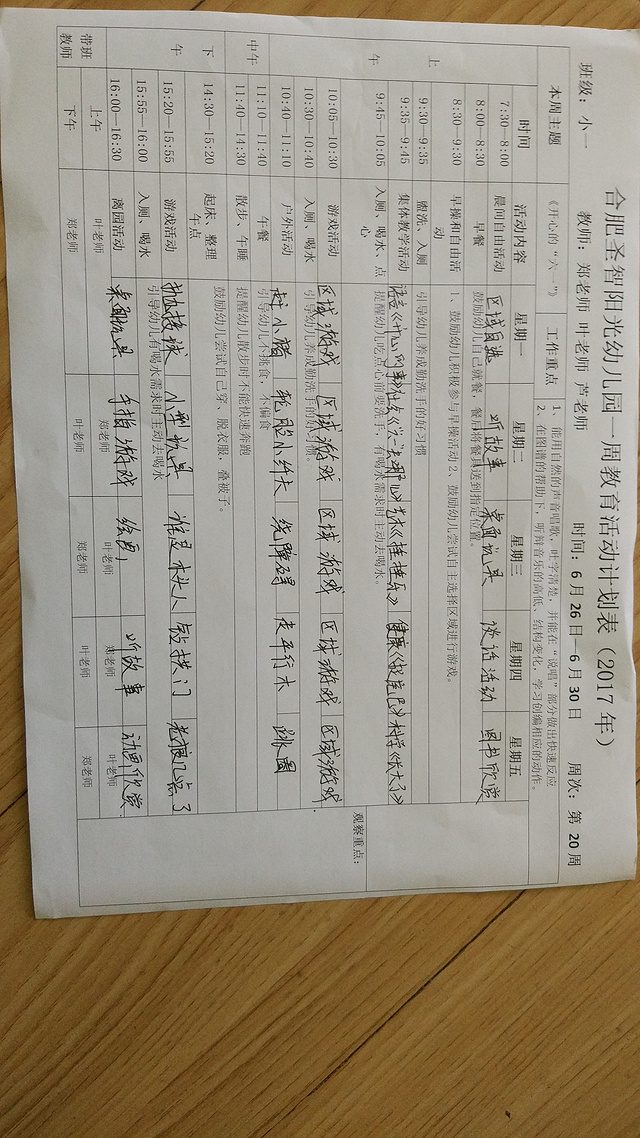 合肥圣智阳光幼儿园一周教育活动计划表（2017 年）
班级：小一 教师：郑老师 叶老师 芦老师 时间：6 月 26 日—6 月 30 日 周次：第 20 周
本周主题 《开心的“六一”》 工作重点 1、能用自然的声音唱歌，吐字清楚，并能在“说唱”部分做出快速反应
2、在图谱的帮助下，听辨音乐的高低、结构变化，学习创编相应的动作。
时间 活动内容 星期一 星期二 星期三 星期四 星期五
上午
7:30—8:00 晨间自由活动 区域自选 听故事 桌面玩具 谈话活动 图书欣赏
8:00—8:30 早餐 鼓励幼儿自己就餐，餐后将餐具送到指定位置。
8:30—9:30 早操和自由活动 1、鼓励幼儿积极参与早操活动 2、鼓励幼儿尝试自主选择区域进行游戏。
9:30—9:35 盥洗、入厕 引导幼儿养成勤洗手的好习惯
9:35—9:45 集体教学活动 语言《开心的事》 艺术《挂挂乐》 健康 科学《长大了》
9:45—10:05 入厕、喝水、点心 提醒幼儿吃点心前要洗手，有喝水需求时主动去喝水。
观察重点：
10:05—10:30 游戏活动 区域游戏 区域游戏 区域游戏 区域游戏 区域游戏
10:30—10:40 入厕、喝水 引导幼儿养成勤洗手的好习惯。
10:40—11:10 户外活动 赶小猪 绕障碍 走平行木 跳圈
中午
11:10—11:40 午餐 引导幼儿不挑食，不偏食
11:40—14:30 散步、午睡 提醒幼儿散步时不能快速奔跑
下午
14:30—15:20 起床、整理 午点 鼓励幼儿尝试自己穿、脱衣服，叠被子。
15:20—15:55 游戏活动 抛接球 小型玩具 谁是木头人 钻拱门 老狼几点了
15:55—16:00 入厕、喝水 引导幼儿有喝水需求时主动去喝水
16:00—16:30 离园活动 桌面玩具 手指游戏 绘画 听故事 动画欣赏
带班教师
上午 叶老师 郑老师 叶老师 郑老师 叶老师
下午 郑老师 叶老师 郑老师 叶老师 郑老师